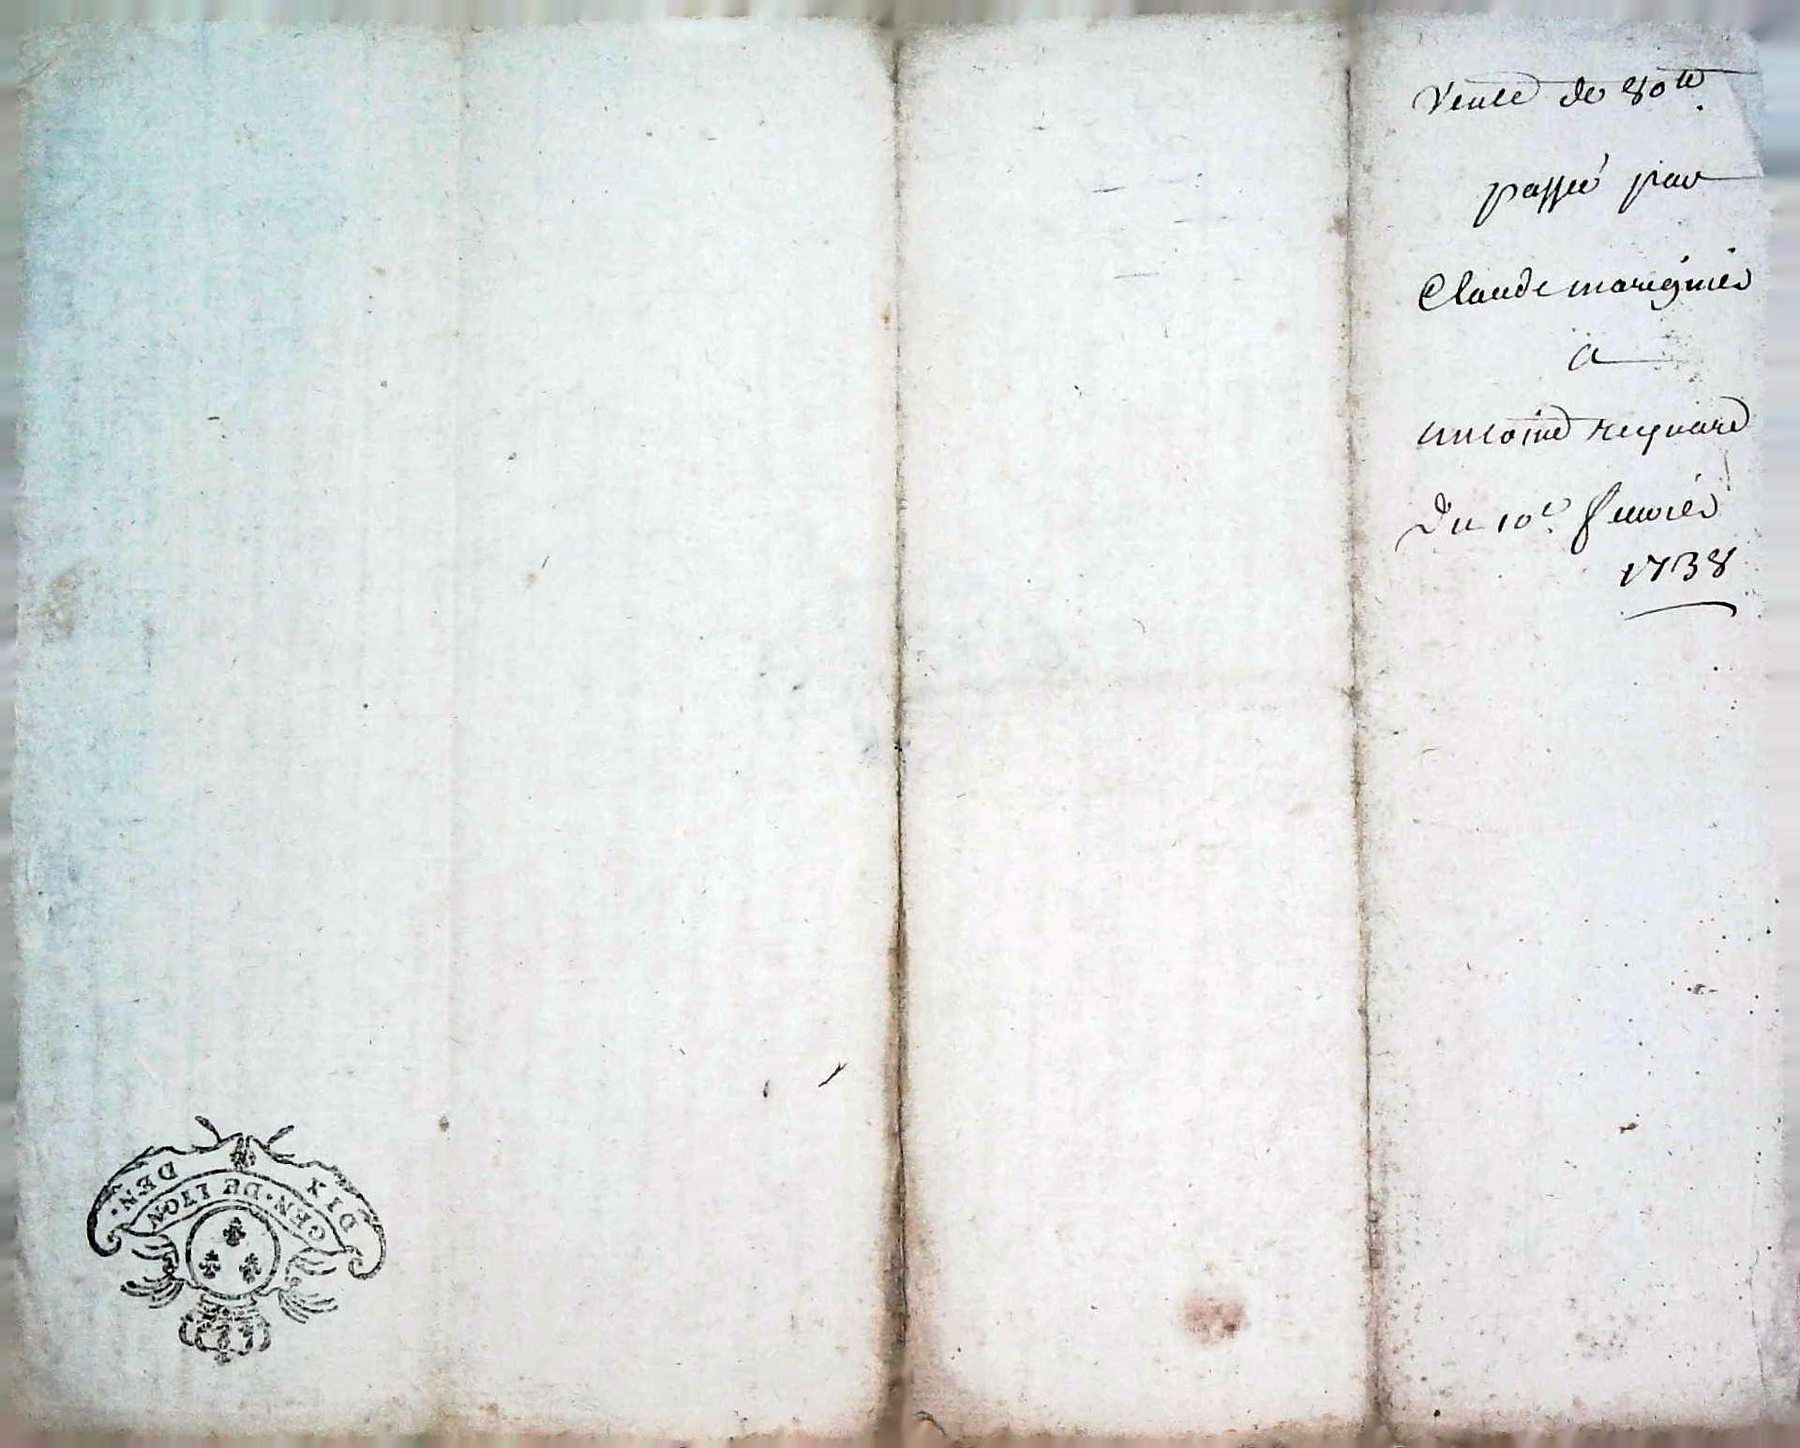 Vente de 80tt
passée par
Claude marégnier
a
antoine reynard
du 10e. feuvrier
1738
DIX DEN.
GEN. DE LYON